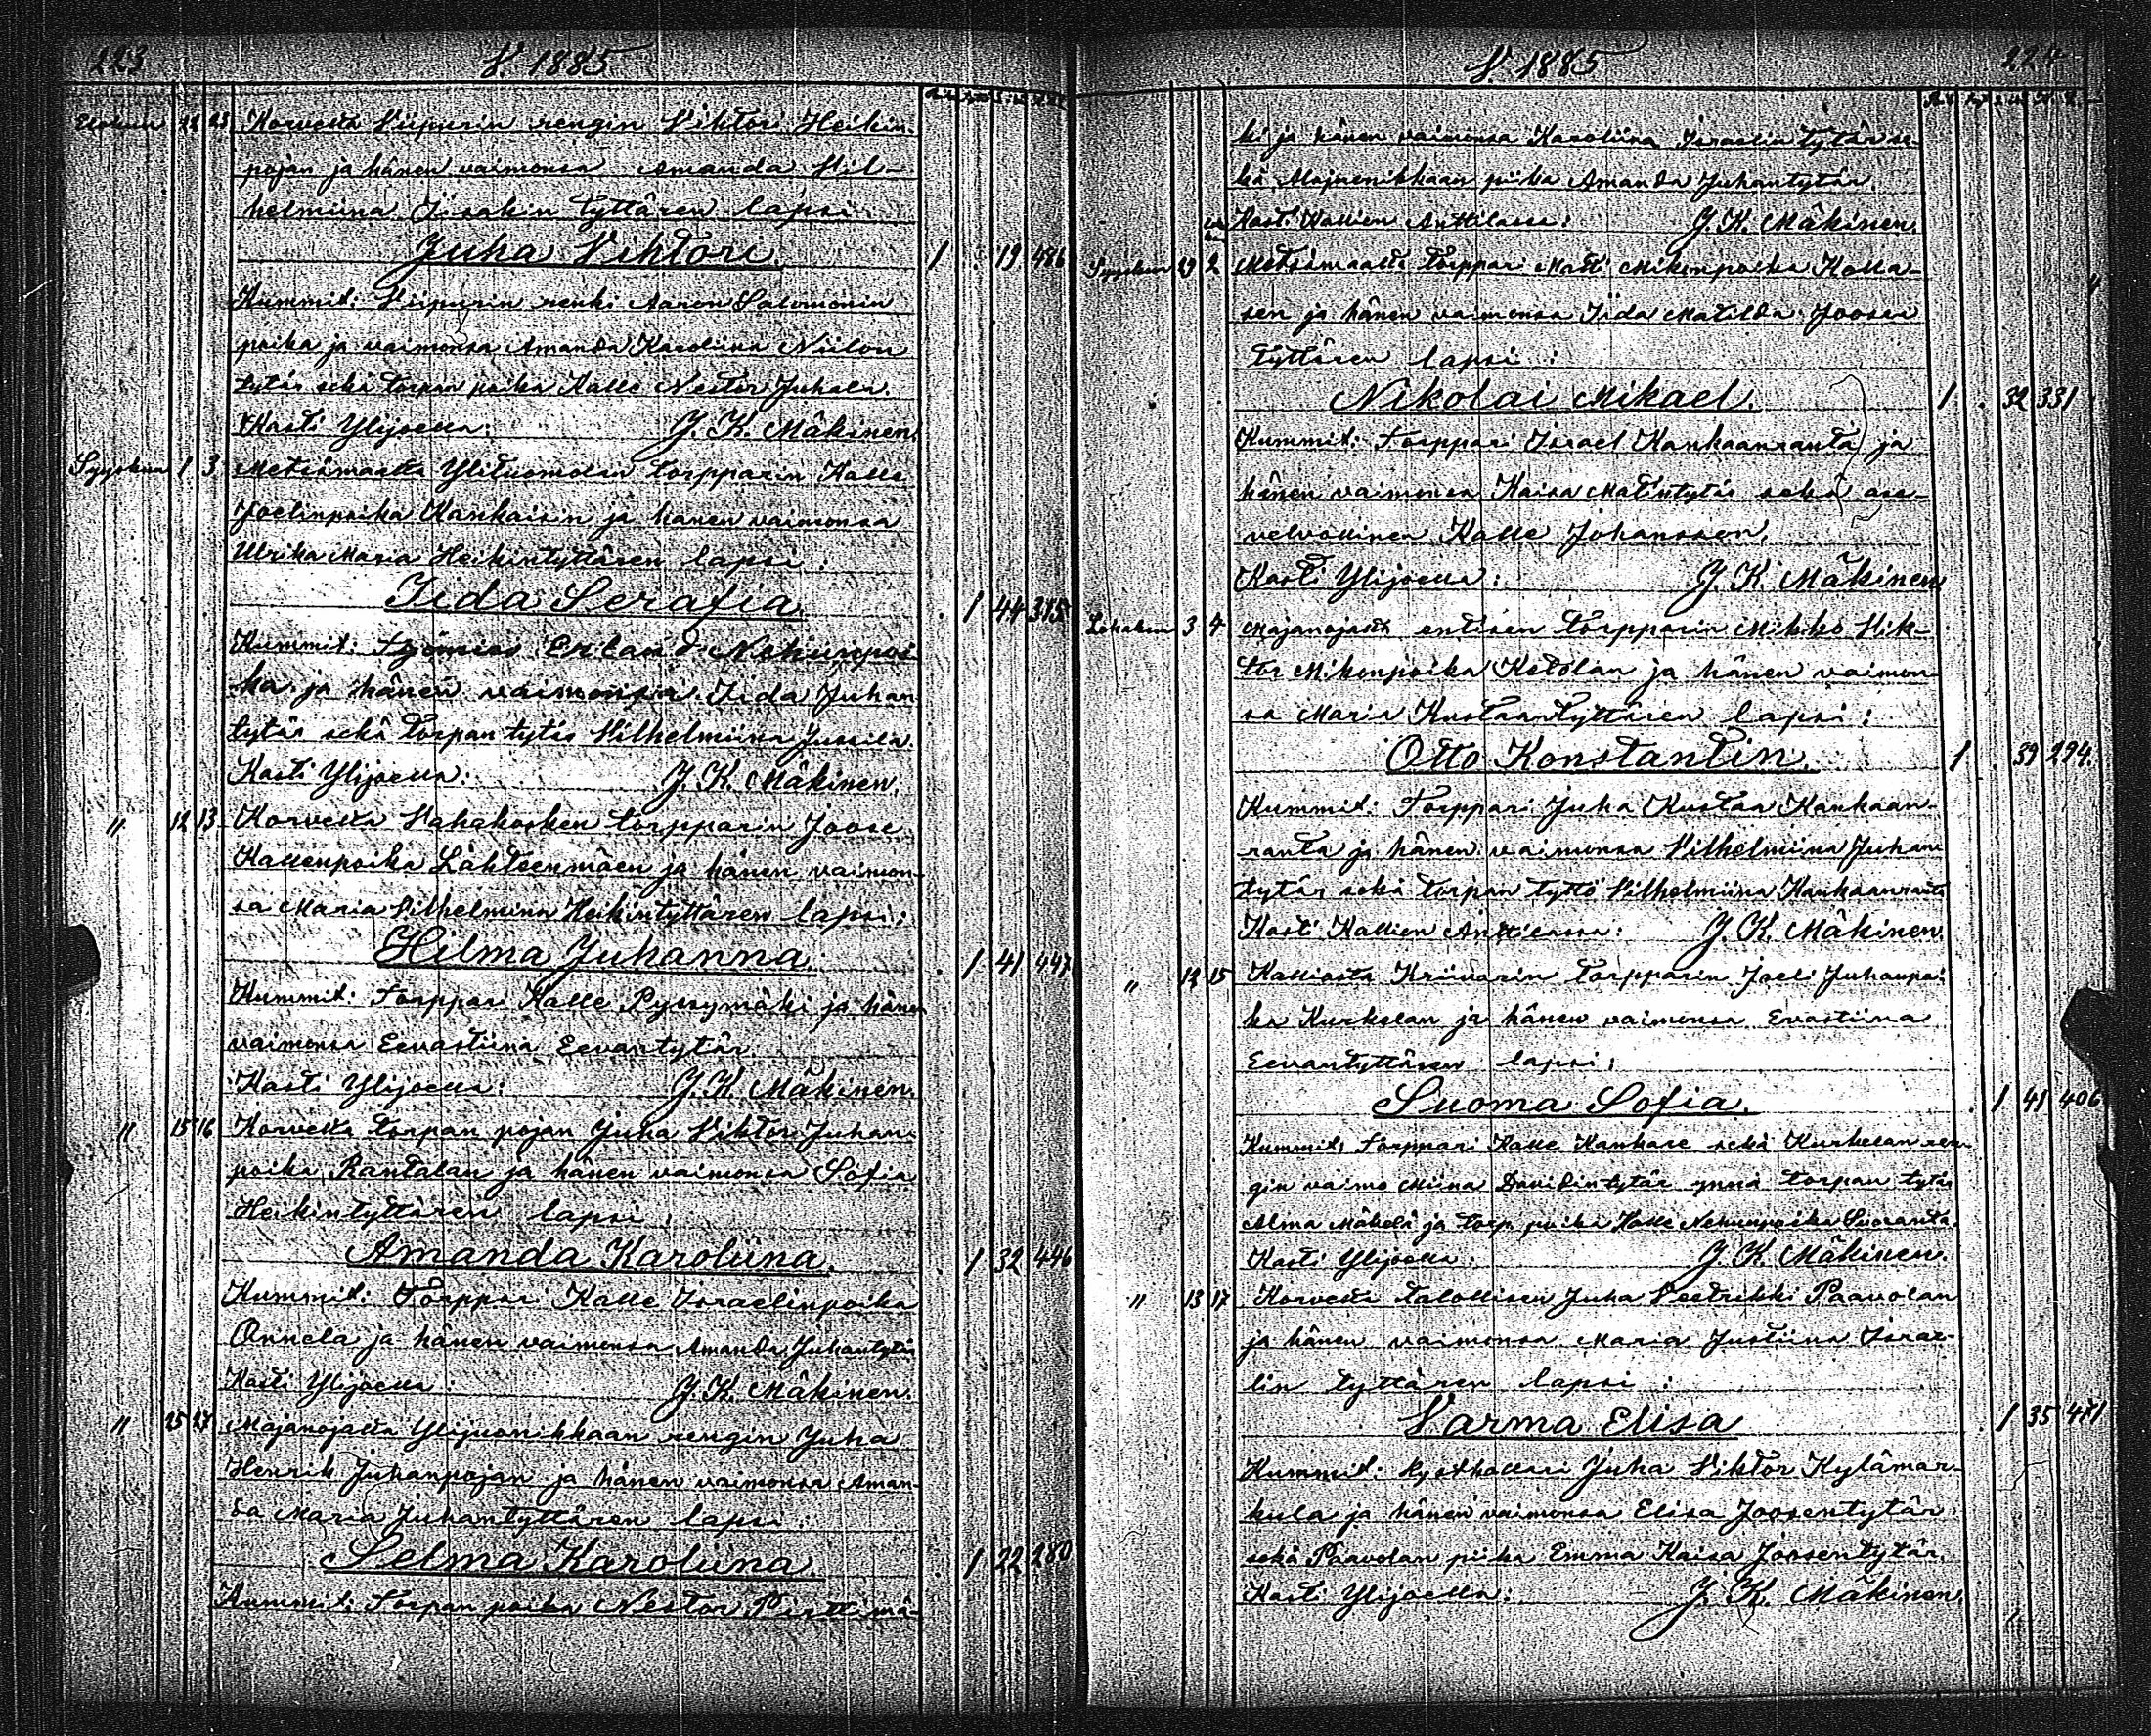 223
V. 1885
Elokuun 22 23 Korvesta Viipurin rengin Viktori Heikin-
pojan ja hänen vaimonsa Amanda Vil-
helmiina Iisakin tyttären lapsi:
Juha Viktori. 1 19 486
Kummit: Viipurin renki Aaron Salomonin
poika ja vaimonsa Amanda Karoliina Niilon
tytär sekä torpan poika Kalle Nestor Juhala.
Kasti Ylijoella: J. K. Mäkinen.
Syyskuu 1 3 Metsämaalta Ylituomolan torpparin Kalle
Joelinpoika Kankaisin ja hänen vaimonsa
Ulrika Maria Heikintyttären lapsi:
Iida Serafia. 1 44 315
Kummit: Työmies Erland Nehunpoi-
ka ja hänen vaimonsa Iida Juhan
tytär sekä torpan tytär Vilhelmiina Jussila.
Kasti Ylijoella: J. K. Mäkinen.
" 12 13 Korvesta Vahakosken torpparin Joose
Kallenpoika Lähteenmäen ja hänen vaimon-
sa Maria Vilhelmiina Heikintyttären lapsi:
Hilma Juhanna. 1 41 447
Kummit: Torppari Kalle Pyssymäki ja hänen
vaimonsa Eevastiina Eevantytär.
Kasti Ylijoella: J. K. Mäkinen.
" 15 16 Korvesta torpan pojan Juha Viktor Juhan-
poika Rantalan ja hänen vaimonsa Sofia
Heikintyttären lapsi:
Amanda Karoliina. 1 32 446
Kummit: Torppari Kalle Israelinpoika
Onnela ja hänen vaimonsa Amanda Juhantytär
Kasti Ylijoella: J. K. Mäkinen.
" 25 27 Majanojalta Ylijuonikkaan rengin Juha
Henrik Juhanpojan ja hänen vaimonsa Aman-
da Maria Juhantyttären lapsi:
Selma Karoliina. 1 22 280
Kummit: Torpan poika Nestor Pirttimä-
V. 1885
224
ki ja hänen vaimonsa Karoliina Israelin tytär se-
kä Alajuonikkaan piika Amanda Juhantytär.
Kasti Kallion Anttilassa: J. K. Mäkinen.
Syyskuu 29 2 Metsämaalta torppari Matti Mikonpoika Kolla-
sen ja hänen vaimonsa Iida Matilda Joosen
tyttären lapsi:
Nikolai Mikael. 1 32 331
Kummit: Torppari Israel Kankaanranta ja
hänen vaimonsa Kaisa Matintytär sekä ase-
velvollinen Kalle Johansson.
Kasti Ylijoella: J. K. Mäkinen
Lokakuu 3 4 Majanojalta entisen torpparin Mikko Vik-
tor Mikonpoika Ketolan ja hänen vaimon-
sa Maria Kustaantyttären lapsi:
Otto Konstantin. 1 39 294.
Kummit: Torppari Juha Kustaa Kankaan-
ranta ja hänen vaimonsa Vilhelmiina Juhan
tytär sekä torpan tyttö Vilhelmiina Kankaanranta
Kasti Kallion Anttilassa: J. K. Mäkinen.
" 12 15 Kalliosta Kriivarin torpparin Joeli Juhanpoi-
ka Kurkelan ja hänen vaimonsa Evastiina
Eevantyttären lapsi:
Suoma Sofia. 1 41 406
Kummit: Torppari Kalle Kankare sekä Kurkelan ren-
gin vaimo Miina Davidintytär ynnä torpan tytär
Alma Mäkelä ja torp. poika Kalle Nehunpoika Suoranta.
Kasti Ylijoella: J. K. Mäkinen.
" 13 17 Korvesta talollisen Juha Veetrikki Paavolan
ja hänen vaimonsa Maria Justiina Israe-
lin tyttären lapsi:
Varma Elisa 1 35 471
Kummit: Rysthollari Juha Viktor Kylämar-
kula ja hänen vaimonsa Elisa Joosentytär
sekä Paavolan piika Emma Kaisa Joosentytär.
Kasti Ylijoella: J. K. Mäkinen.